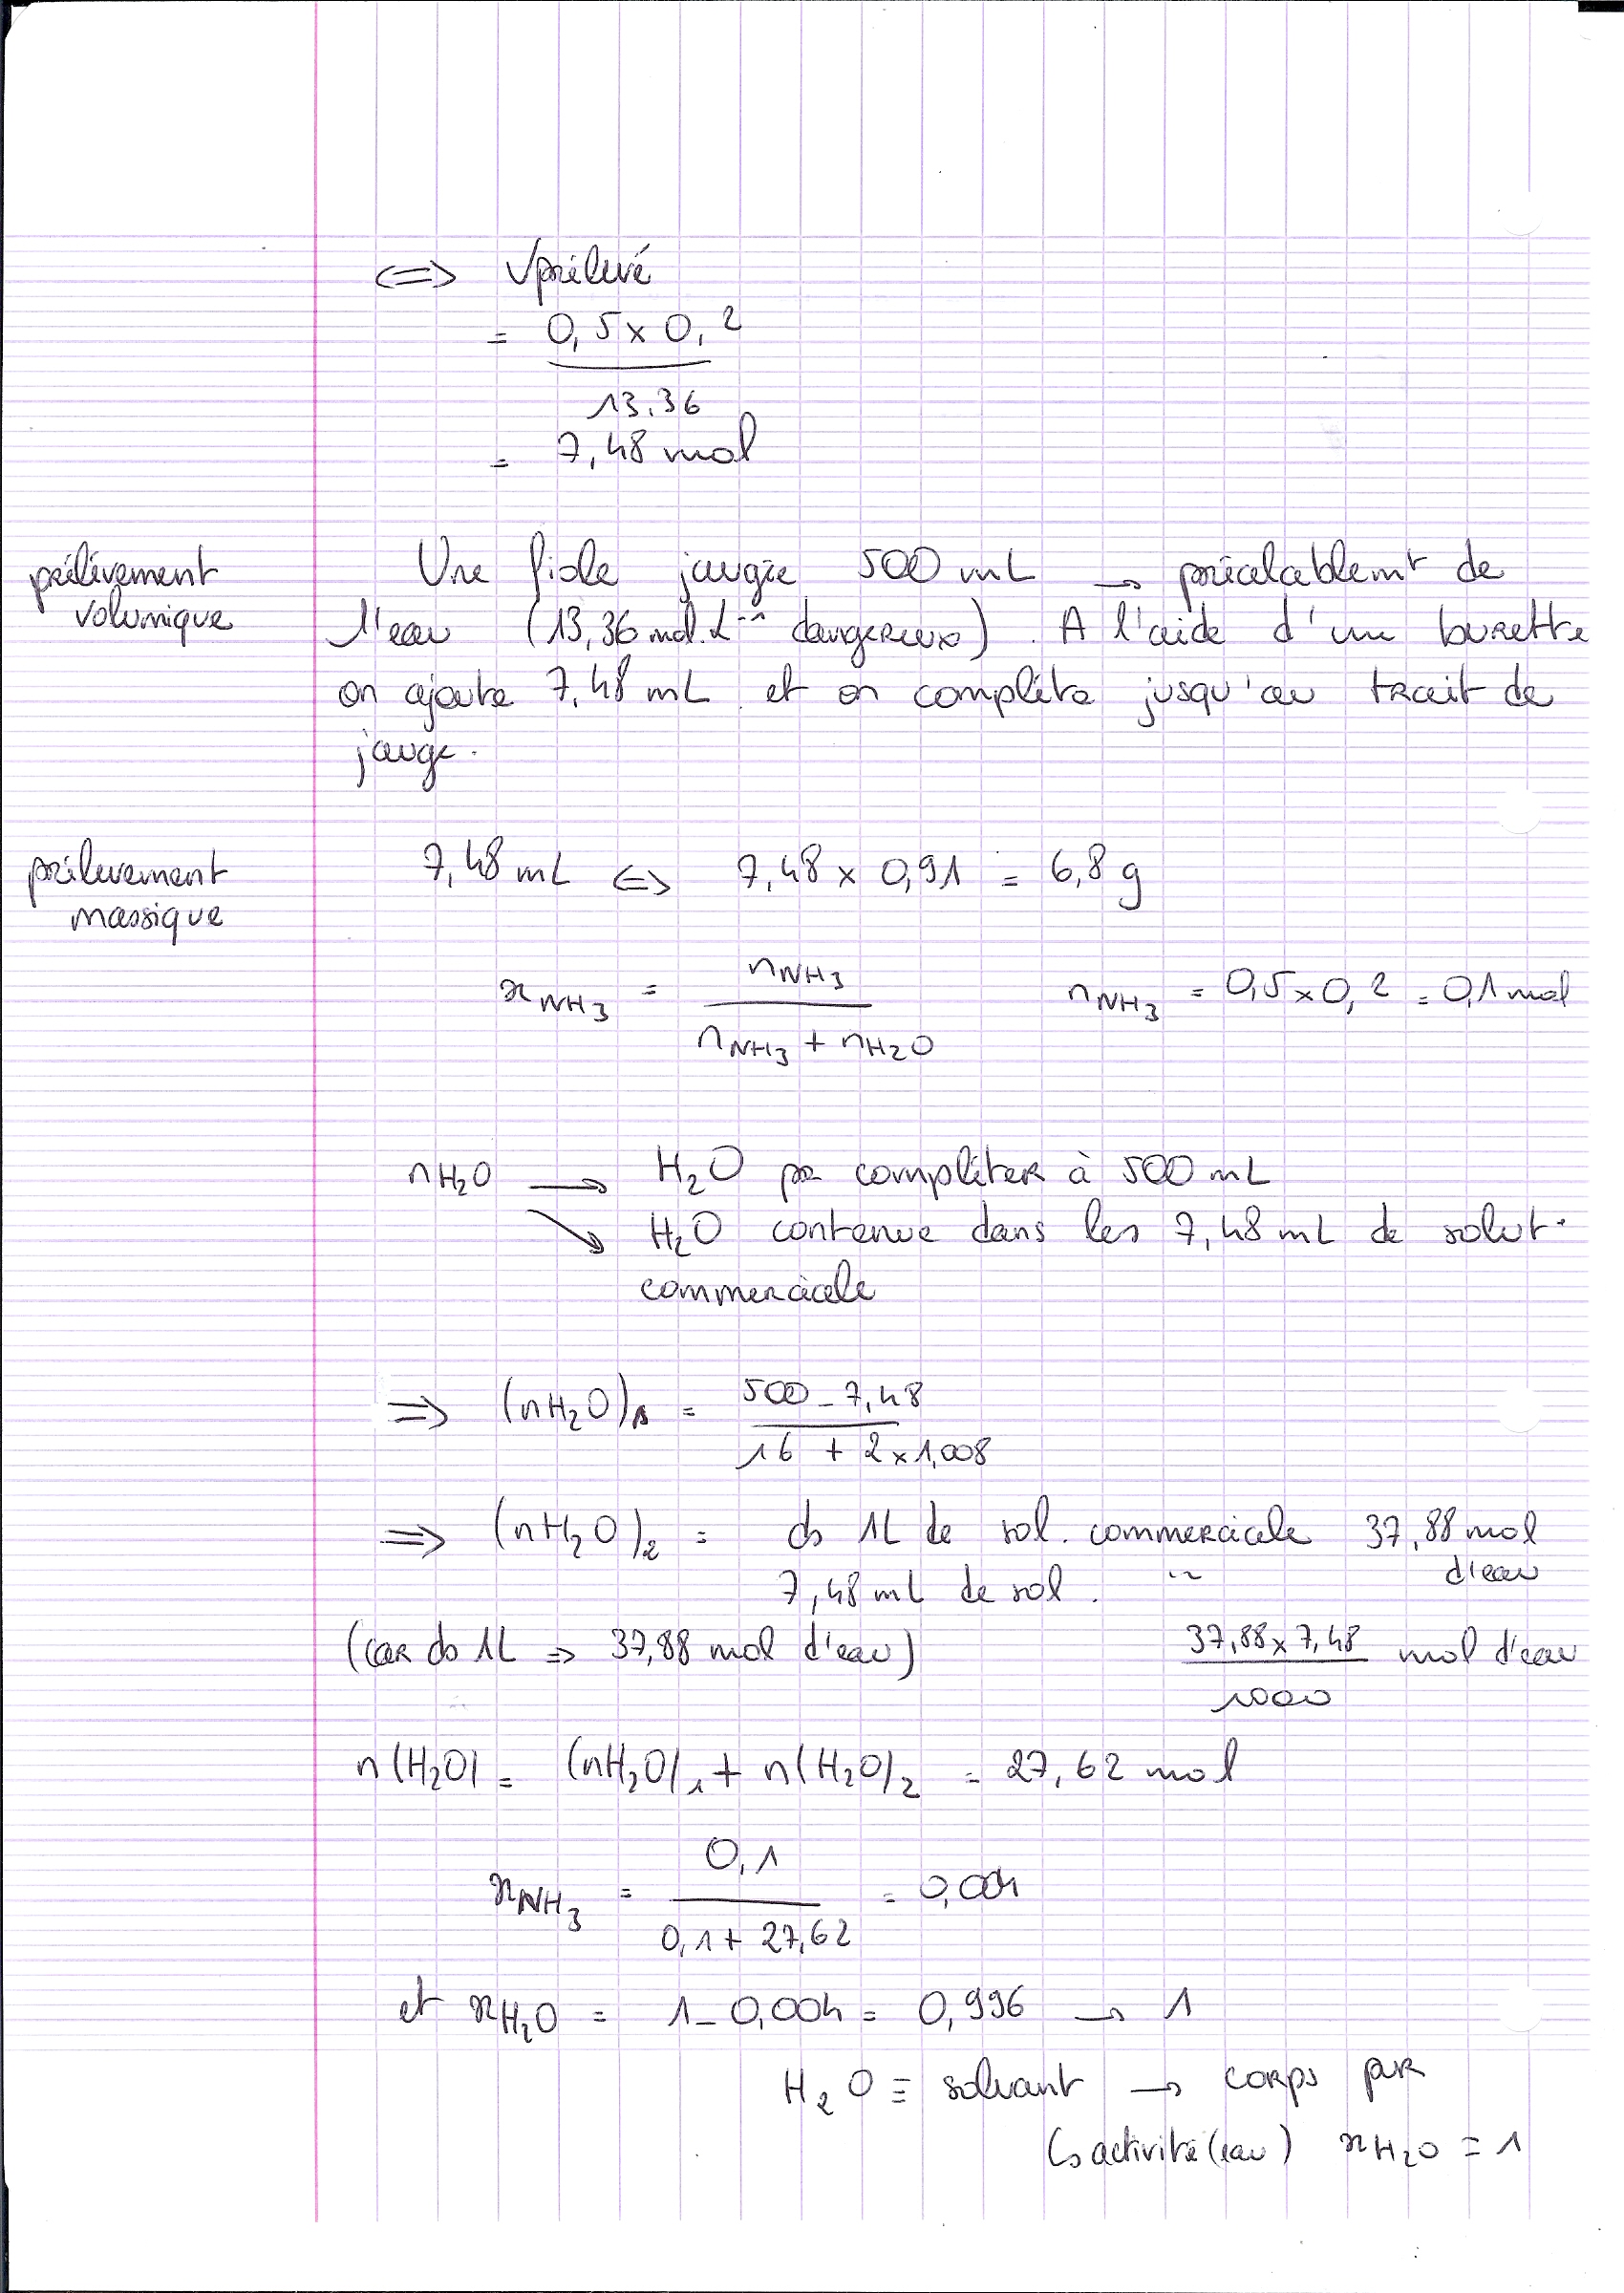 <=> Vprélevé
= 0,5 x 0,2
13.36
= 7,48 mol
prélèvement volumique
Une fiole jaugée 500 mL → préalablemt de
l'eau (13,36 mol.L⁻¹ dangereux). A l'aide d'un burette
on ajoute 7,48 mL et on complète jusqu'au trait de
jauge.
prélevement massique
7,48 mL <=> 7,48 x 0,91 = 6,8 g
xNH3 = nNH3 / (nNH3 + nH2O) nNH3 = 0,5 x 0,2 = 0,1 mol
nH2O → H2O pr compléter à 500 mL
↘ H2O contenue dans les 7,48 mL de solut°
commerciale
=> (nH2O)1 = (500 - 7,48) / (16 + 2 x 1,008)
=> (nH2O)2 = ds 1L de sol. commerciale 37,88 mol d'eau
7,48 mL de sol. "
(car ds 1L => 37,88 mol d'eau) 37,88 x 7,48 / 1000 mol d'eau
n(H2O) = (nH2O)1 + n(H2O)2 = 27,62 mol
xNH3 = 0,1 / (0,1 + 27,62) = 0,004
et xH2O = 1 - 0,004 = 0,996 → 1
H2O ≡ solvant → corps pur
↳ activité (eau) xH2O = 1